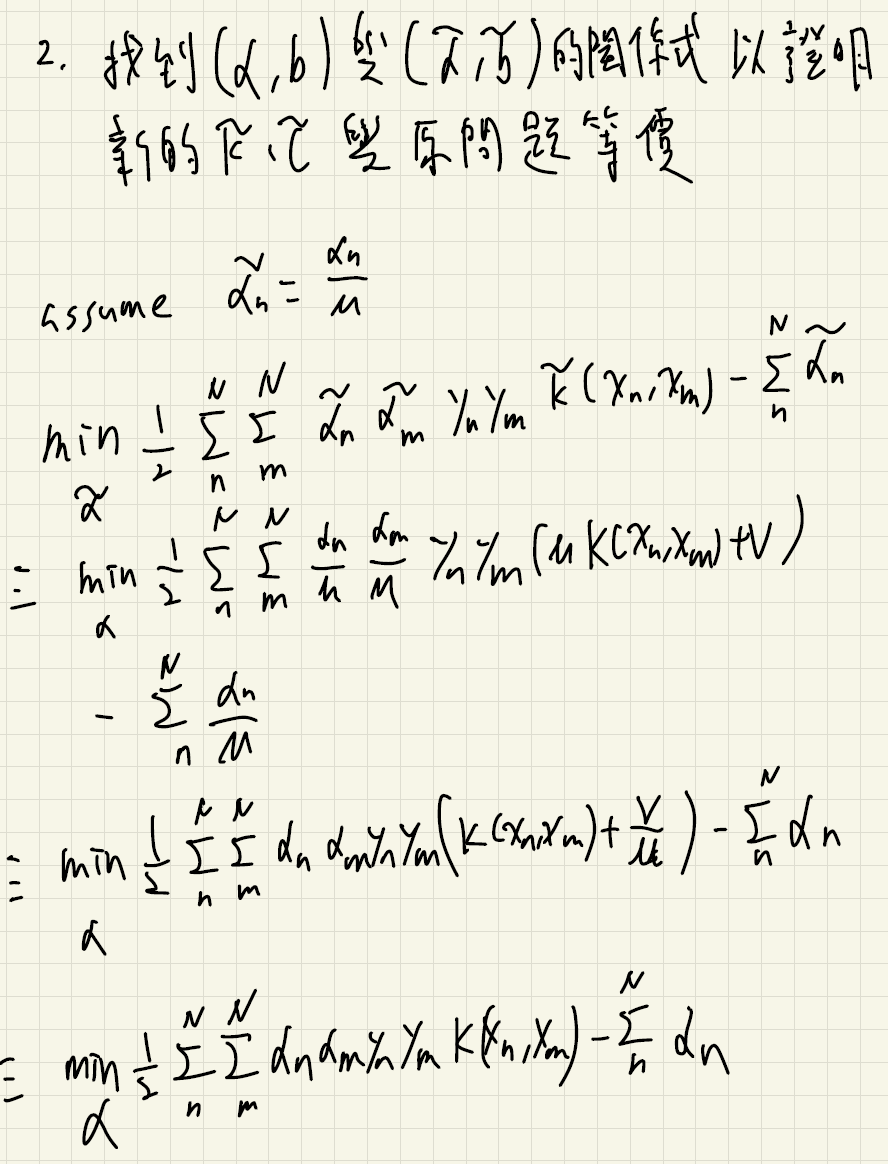 2. 找到(α,b)與(α̃,b̃)的關係式 以證明
新的 K̃、C̃ 與原問題等價
assume α̃n = αn/μ
min α̃ 1/2 Σn^N Σm^N α̃n α̃m yn ym K̃(xn,xm) - Σn^N α̃n
≡ min α 1/2 Σn^N Σm^N αn/μ αm/μ yn ym (μK(xn,xm)+V)
- Σn^N αn/μ
≡ min α 1/2 Σn^N Σm^N αn αm yn ym (K(xn,xm)+V/μ) - Σn^N αn
≡ min α 1/2 Σn^N Σm^N αn αm yn ym K(xn,xm) - Σn^N αn